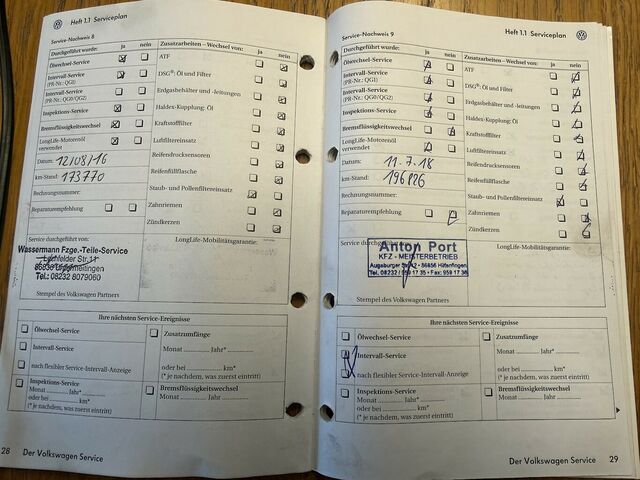 Heft 1.1 Serviceplan
Service-Nachweis 8
Durchgeführt wurde: ja nein
Zusatzarbeiten – Wechsel von: ja nein
Ölwechsel-Service
Intervall-Service
(PR-Nr.: QG1)
Intervall-Service
(PR-Nr.: QG0/QG2)
Inspektions-Service
Bremsflüssigkeitswechsel
LongLife-Motorenöl
verwendet
Datum: 12/08/16
km-Stand: 173770
Rechnungsnummer:
Reparaturempfehlung
ATF
DSG®: Öl und Filter
Erdgasbehälter und -leitungen
Haldex-Kupplung: Öl
Kraftstofffilter
Luftfiltereinsatz
Reifendrucksensoren
Reifenfüllflasche
Staub- und Pollenfiltereinsatz
Zahnriemen
Zündkerzen
Service durchgeführt von:
LongLife-Mobilitätsgarantie:
Wassermann Fzge.-Teile-Service
Tel.: 08232 8079060
Stempel des Volkswagen Partners
Ihre nächsten Service-Ereignisse
Ölwechsel-Service
Intervall-Service
nach flexibler Service-Intervall-Anzeige
Inspektions-Service
Monat Jahr*
oder bei km*
(* je nachdem, was zuerst eintritt)
Zusatzumfänge
Monat Jahr*
oder bei km*
(* je nachdem, was zuerst eintritt)
Bremsflüssigkeitswechsel
Monat Jahr
28 Der Volkswagen Service
Heft 1.1 Serviceplan
Service-Nachweis 9
Durchgeführt wurde: ja nein
Zusatzarbeiten – Wechsel von: ja nein
Ölwechsel-Service
Intervall-Service
(PR-Nr.: QG1)
Intervall-Service
(PR-Nr.: QG0/QG2)
Inspektions-Service
Bremsflüssigkeitswechsel
LongLife-Motorenöl
verwendet
Datum: 11.7.18
km-Stand: 196826
Rechnungsnummer:
Reparaturempfehlung
ATF
DSG®: Öl und Filter
Erdgasbehälter und -leitungen
Haldex-Kupplung: Öl
Kraftstofffilter
Luftfiltereinsatz
Reifendrucksensoren
Reifenfüllflasche
Staub- und Pollenfiltereinsatz
Zahnriemen
Zündkerzen
Service durchgeführt
LongLife-Mobilitätsgarantie:
Anton Port
KFZ - MEISTERBETRIEB
Augsburger Str. 2 · 86856 Hiltenfingen
Tel. 08232 / 959 17 35 · Fax: 959 17 36
Stempel des Volkswagen Partners
Ihre nächsten Service-Ereignisse
Ölwechsel-Service
Intervall-Service
nach flexibler Service-Intervall-Anzeige
Inspektions-Service
Monat Jahr*
oder bei km*
(* je nachdem, was zuerst eintritt)
Zusatzumfänge
Monat Jahr*
oder bei km*
(* je nachdem, was zuerst eintritt)
Bremsflüssigkeitswechsel
Monat Jahr
Der Volkswagen Service 29